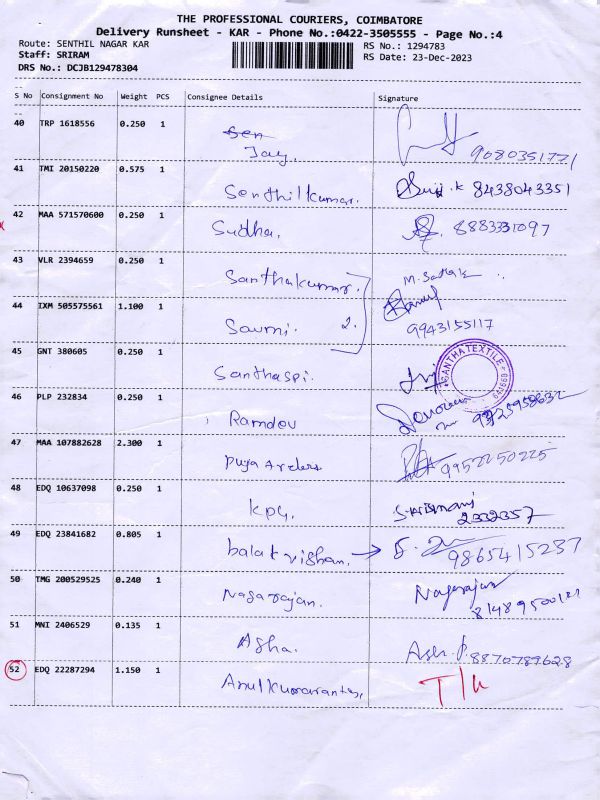 THE PROFESSIONAL COURIERS, COIMBATORE
Delivery Runsheet - KAR - Phone No.:0422-3505555 - Page No.:4
Route: SENTHIL NAGAR KAR RS No.: 1294783
Staff: SRIRAM RS Date: 23-Dec-2023
DRS No.: DCJB129478304
S No Consignment No Weight PCS Consignee Details Signature
40 TRP 1618556 0.250 1 Sen
Jay. 9080351771
41 TMI 20150220 0.575 1 Senthilkumar. 8438043351
42 MAA 571570600 0.250 1 Sudha. 8883331097
43 VLR 2394659 0.250 1 Santhakumar.
44 IXM 505575561 1.100 1 Sowmi. 2. 9943155117
45 GNT 380605 0.250 1 Santhaspi. SANTHA TEXTILE
46 PLP 232834 0.250 1 Ramdev
47 MAA 107882628 2.300 1 9952250225
48 EDQ 10637098 0.250 1 2332357
49 EDQ 23841682 0.805 1 balakrishan. 9865415237
50 TMG 200529525 0.240 1 Nagarajan. Nagarajan
51 MNI 2406529 0.135 1 Asha. 8870789628
52 EDQ 22287294 1.150 1